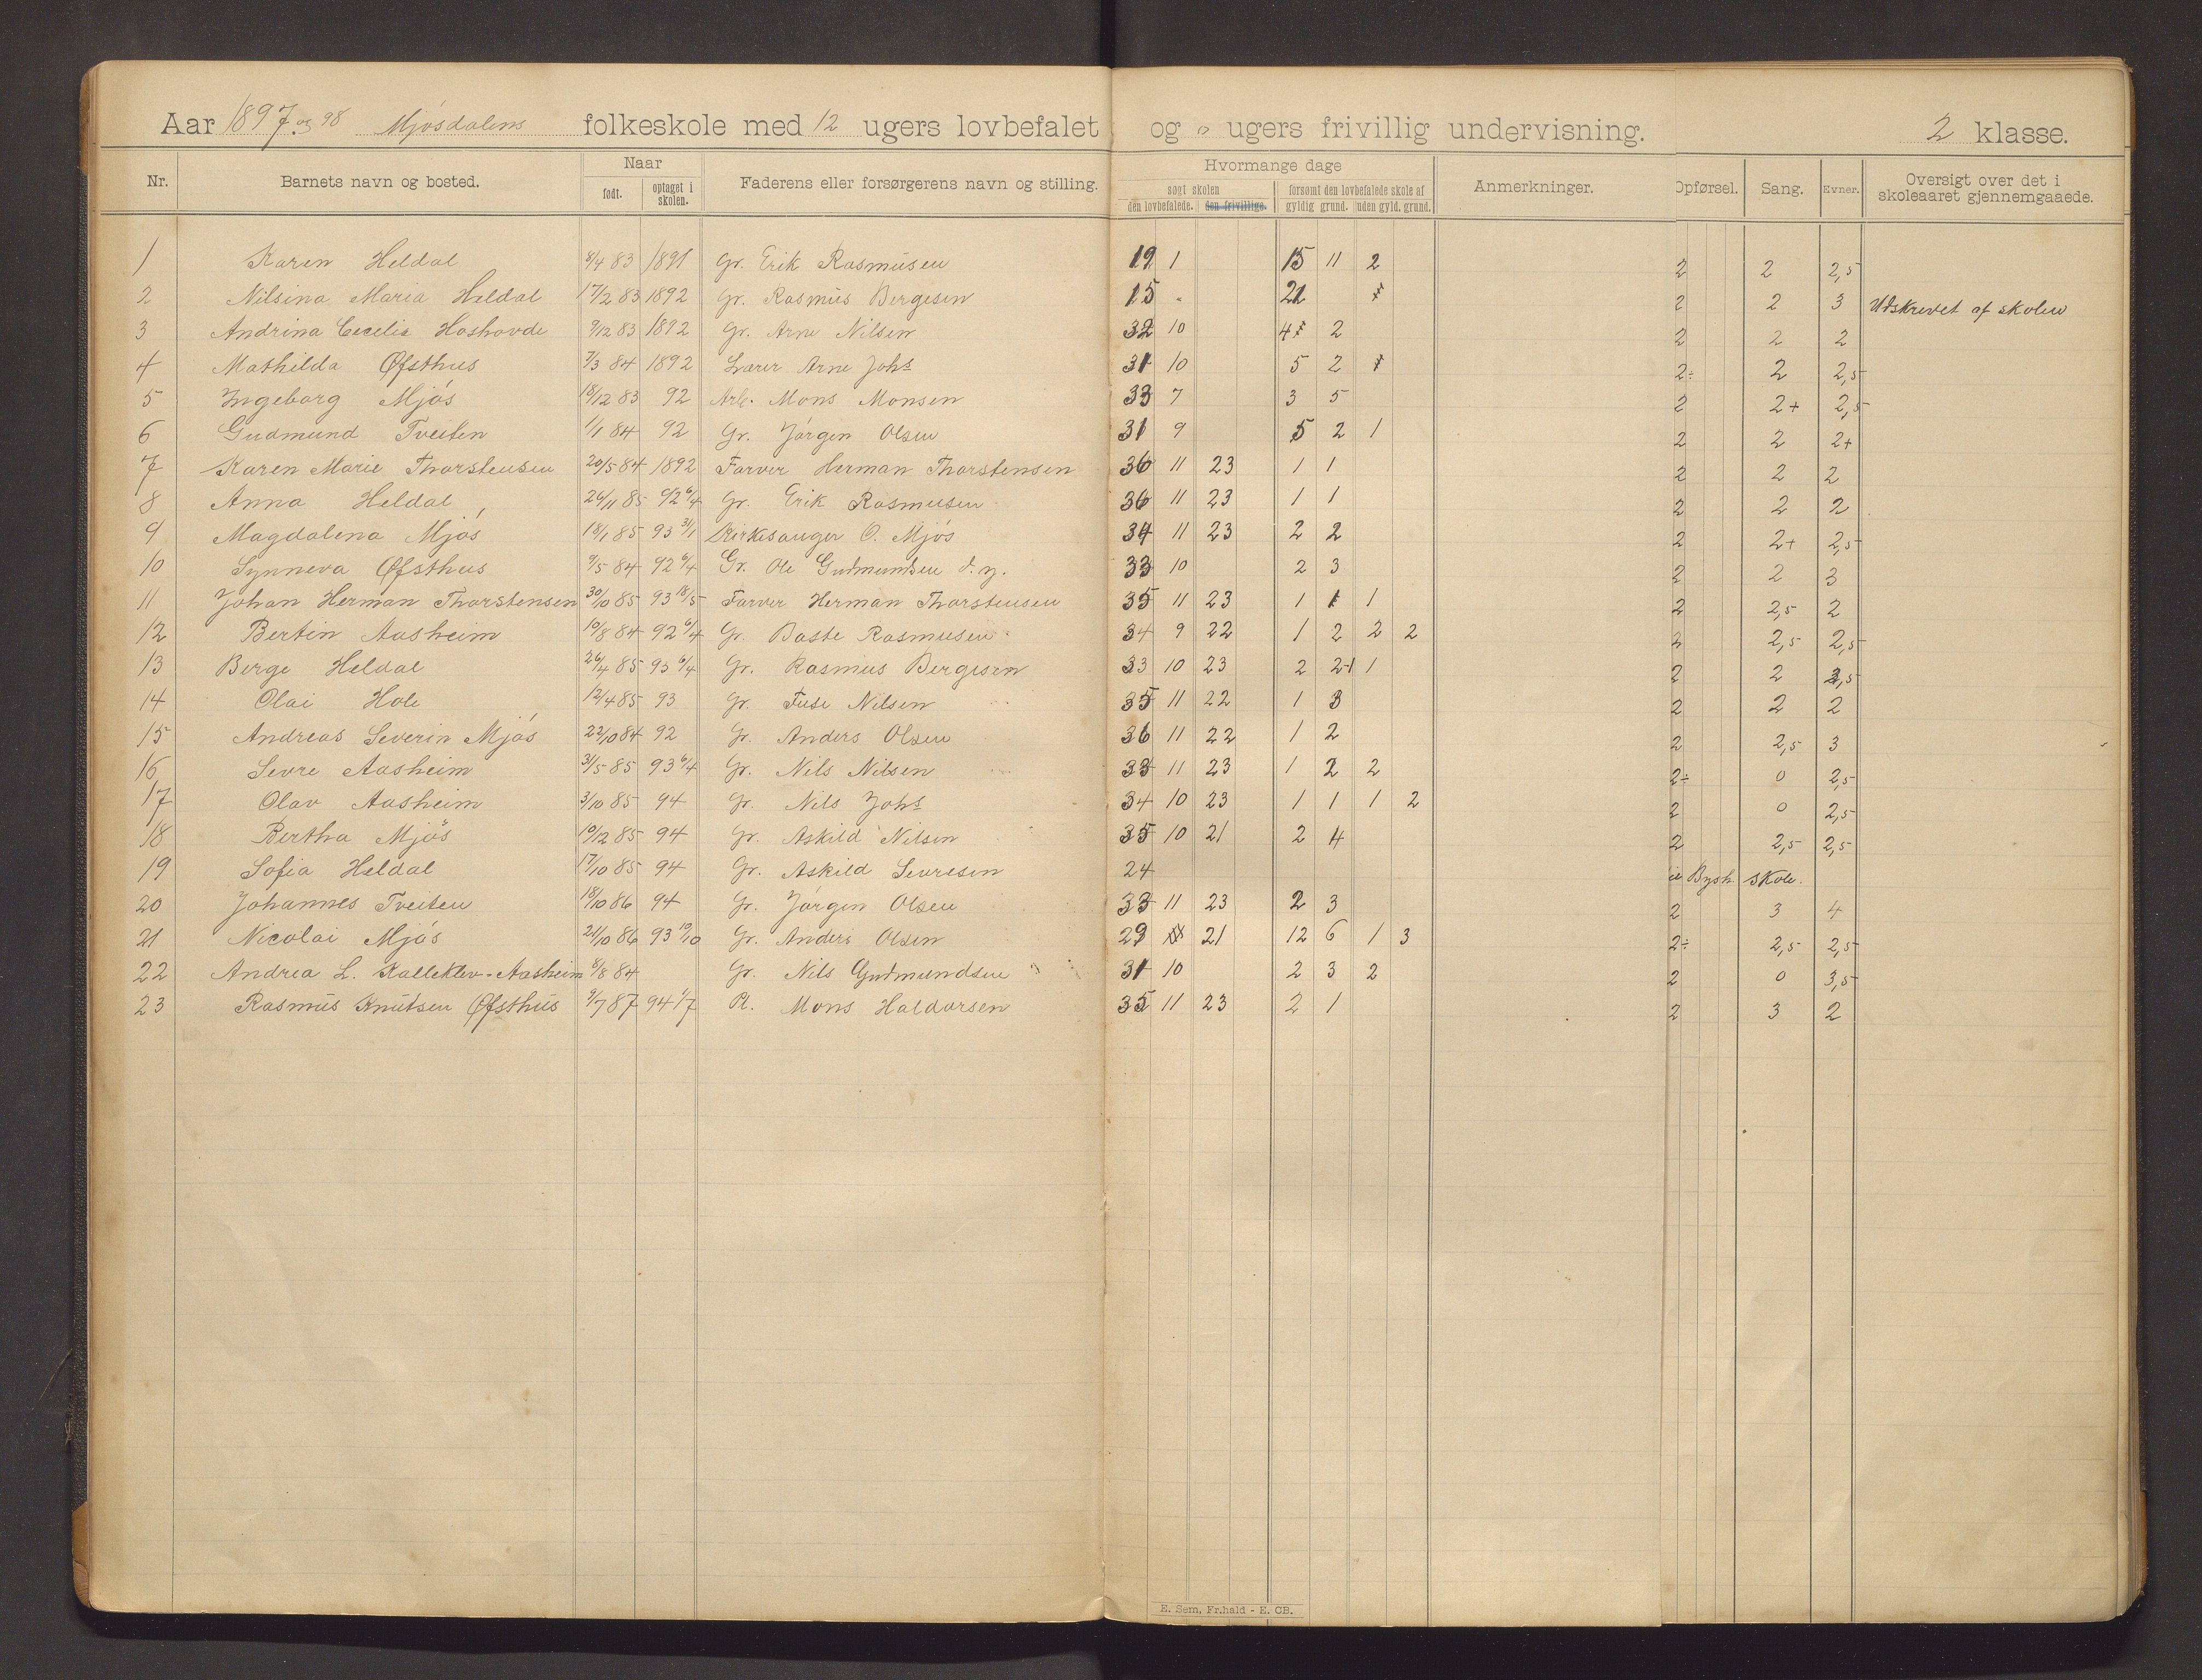 Aar 1897 og 98 Mjøsdalens folkeskole med 12 ugers lovbefalet og 0 ugers frivillig undervisning. 2 klasse.
Nr. Barnets navn og bosted. Naar født. optaget i skolen. Faderens eller forsørgerens navn og stilling. Hvormange dage søgt skolen den lovbefalede. den frivillige. forsømt den lovbefalede skole af gyldig grund. uden gyld. grund. Anmerkninger. Opførsel. Sang. Evner. Oversigt over det i skoleaaret gjennemgaaede.
1 Karen Heldal 8/4 83 1891 Gr. Erik Rasmusen 19 1 15 11 2 2 2 2,5
2 Nilsina Maria Heldal 17/2 83 1892 Gr. Rasmus Bergesen 15 21 2 2 3 Udskrevet af skolen
3 Andrina Cecelia Hoshovde 9/12 83 1892 Gr. Arne Nilsen 32 10 4 2 2 2 2
4 Mathilda Øfsthus 7/3 84 1892 Lærer Arne Johs 31 10 5 2 2÷ 2 2,5
5 Ingeborg Mjøs 18/12 83 92 Arb. Mons Monsen 33 7 3 5 2 2+ 2,5
6 Gudmund Tveiten 1/1 84 92 Gr. Jørgen Olsen 31 9 5 2 1 2 2 2+
7 Karen Marie Thorstensen 20/5 84 1892 Farver Herman Thorstensen 36 11 23 1 1 2 2 2
8 Anna Heldal 26/11 85 92 6/4 Gr. Erik Rasmusen 36 11 23 1 1 2 2 2
9 Magdalena Mjøs 18/1 85 93 31/1 Kirkesanger O. Mjøs 34 11 23 2 2 2 2+ 2,5
10 Synneva Øfsthus 9/5 84 92 6/4 Gr. Ole Gudmundsen d. y. 33 10 2 3 2 2 3
11 Johan Herman Thorstensen 30/10 85 93 18/5 Farver Herman Thorstensen 35 11 23 1 1 1 2 2,5 2
12 Bertin Aasheim 10/8 84 92 6/4 Gr. Baste Rasmusen 34 9 22 1 2 2 2 2 2,5 2,5
13 Berge Heldal 26/4 85 93 6/4 Gr. Rasmus Bergesen 33 10 23 2 2 1 2 2 3,5
14 Olai Hole 12/4 85 93 Gr. Fuse Nilsen 35 11 22 1 3 2 2 2
15 Andreas Severin Mjøs 22/10 84 92 Gr. Anders Olsen 36 11 22 1 2 2 2,5 3
16 Sevre Aasheim 31/5 85 93 6/4 Gr. Nils Nilsen 33 11 23 1 2 2 2÷ 0 2,5
17 Olav Aasheim 3/10 85 94 Gr. Nils Johs 34 10 23 1 1 1 2 2 0 2,5
18 Bertha Mjøs 10/12 85 94 Gr. Askild Nilsen 35 10 21 2 4 2 2,5 2,5
19 Sofia Heldal 17/10 85 94 Gr. Askild Sevresen 24 skole.
20 Johannes Tveiten 18/10 86 94 Gr. Jørgen Olsen 33 11 23 2 3 2 3 4
21 Nicolai Mjøs 21/10 86 93 10/10 Gr. Anders Olsen 29 21 12 6 1 3 2÷ 2,5 2,5
22 Andrea L. Kalleklev-Aasheim 8/8 84 Gr. Nils Gudmundsen 31 10 2 3 2 2 0 3,5
23 Rasmus Knutsen Øfsthus 9/7 87 94 1/7 Pl. Mons Haldorsen 35 11 23 2 1 2 3 2
E. Sem, Fr.hald - E. CB.